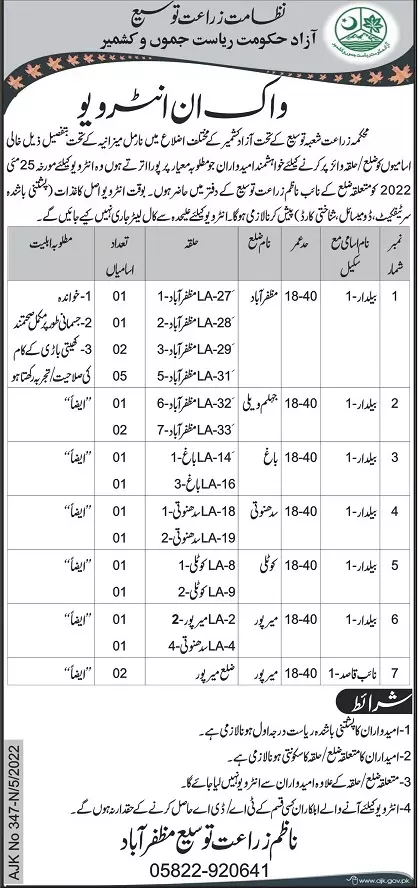 نظامت زراعت توسیع
آزاد حکومت ریاست جموں و کشمیر
واک ان انٹرویو
محکمہ زراعت شعبہ توسیع کے تحت آزاد کشمیر کے مختلف اضلاع میں نارمل میزانیہ کے تحت بتفصیل ذیل خالی
اسامیوں کو ضلع/حلقہ وائز پر کرنے کیلئے خواہشمند امیدواران جو مطلوبہ معیار پر پورا اترتے ہوں وہ انٹرویو کیلئے مورخہ 25 مئی
2022 کو متعلقہ ضلع کے نائب ناظم زراعت توسیع کے دفتر میں حاضر ہوں۔ بوقت انٹرویو اصل کاغذات (پشتنی باشندہ
سرٹیفکیٹ، ڈومیسائل، شناختی کارڈ) پیش کرنا لازمی ہوگا۔ انٹرویو کیلئے علیحدہ سے کال لیٹر جاری نہیں کیے جائیں گے۔
نمبر شمار | نام اسامی مع سکیل | حد عمر | نام ضلع | حلقہ | تعداد اسامیاں | مطلوبہ اہلیت
1 | بیلدار-1 | 18-40 | مظفرآباد | LA-27 مظفرآباد-1 | 01 | 1- خواندہ
LA-28 مظفرآباد-2 | 01 | 2- جسمانی طور پر مکمل صحتمند
LA-29 مظفرآباد-3 | 02 | 3- کھیتی باڑی کے کام
LA-31 مظفرآباد-5 | 05 | کی صلاحیت/تجربہ رکھتا ہو
2 | بیلدار-1 | 18-40 | جہلم ویلی | LA-32 مظفرآباد-6 | 01 | "ایضاً"
LA-33 مظفرآباد-7 | 02
3 | بیلدار-1 | 18-40 | باغ | LA-14 باغ-1 | 01 | "ایضاً"
LA-16 باغ-3 | 01
4 | بیلدار-1 | 18-40 | سدھنوتی | LA-18 سدھنوتی-1 | 01 | "ایضاً"
LA-19 سدھنوتی-2 | 01
5 | بیلدار-1 | 18-40 | کوٹلی | LA-8 کوٹلی-1 | 01 | "ایضاً"
LA-9 کوٹلی-2 | 01
6 | بیلدار-1 | 18-40 | میرپور | LA-2 میرپور-2 | 01 | "ایضاً"
LA-4 سدھنوتی-4 | 01
7 | نائب قاصد-1 | 18-40 | میرپور | ضلع میرپور | 02 | "ایضاً"
شرائط
1- امیدواران کا پشتنی باشندہ ریاست درجہ اول ہونا لازمی ہے۔
2- امیدواران کا متعلقہ ضلع/حلقہ کا سکونتی ہونا لازمی ہے۔
3- متعلقہ ضلع/حلقہ کے علاوہ امیدواران سے انٹرویو نہیں لیا جائے گا۔
4- انٹرویو کیلئے آنے والے اہلکاران کسی قسم کے ٹی اے/ڈی اے حاصل کرنے کے حقدار نہ ہوں گے۔
ناظم زراعت توسیع مظفرآباد
05822-920641
AJK No 347-N/5/2022
www.ajk.gov.pk